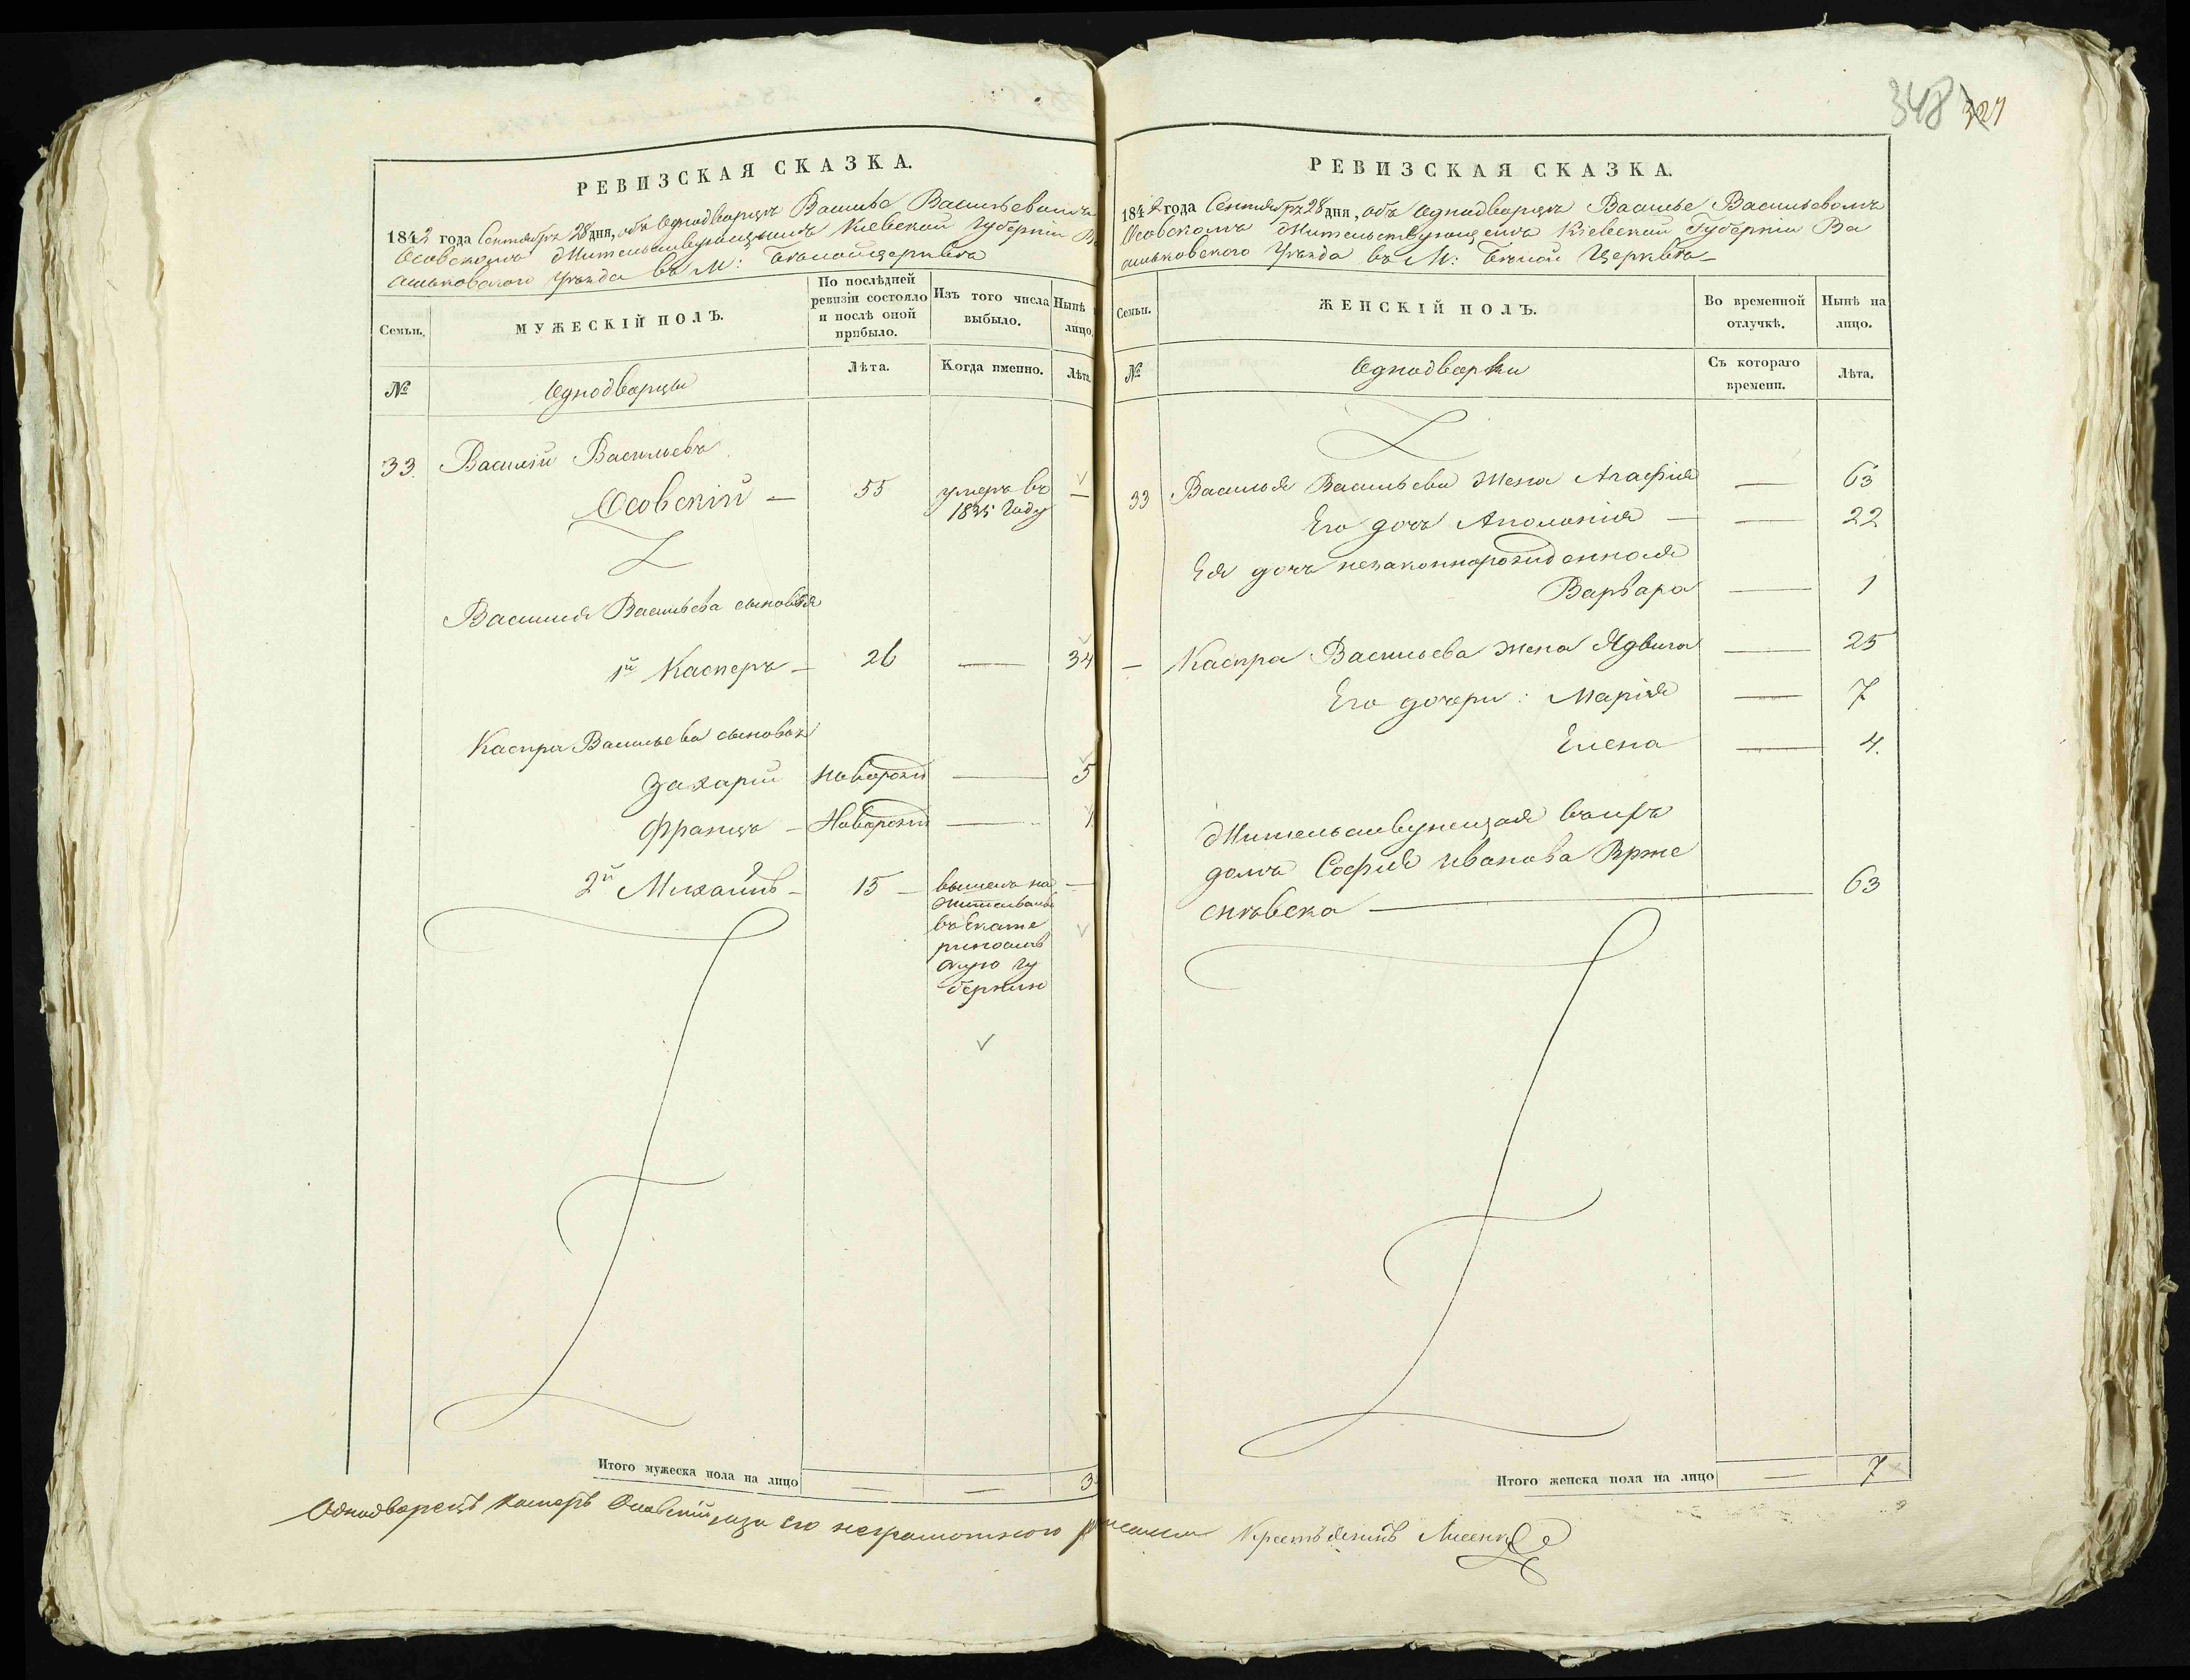 348 327
РЕВИЗСКАЯ СКАЗКА.
1842 года Сентября 28 дня, объ Однодворцѣ Василье Васильевомъ
Осовскомъ Жительствующимъ Кіевской Губерніи Ва
сильковского Уѣзда въ М: Бѣлойцерквѣ
Семьи.
МУЖЕСКІЙ ПОЛЪ.
По послѣдней ревизіи состояло и послѣ оной прибыло.
Изъ того числа выбыло.
Нынѣ
лицо.
№
Однодворцы
Лѣта.
Когда именно.
Лѣта.
33. Василій Васильевъ
Осовскій — 55 умеръ въ —
1835 Году
Василия Васильева сыновья
1й Касперъ — 26 — 34
Каспра Васильева сыновья
Захарій Новорожд — 5
Францъ — Новорожд — 1
2й Михайлъ — 15 — вышелъ на —
жительство
въ Екате
ринослав
скую гу
бернию
Итого мужеска пола на лицо — — 3
РЕВИЗСКАЯ СКАЗКА.
1842 года Сентября 28 дня, объ Однодворцѣ Василье Васильевомъ
Осовскомъ Жительствующемъ Кіевской Губерніи Ва
сильковского Уѣзда въ М: Бѣлой Церквѣ
Семьи.
ЖЕНСКІЙ ПОЛЪ.
Во временной отлучкѣ.
Нынѣ на лицо.
№
Однодворки
Съ котораго времени.
Лѣта.
33 Василья Васильева жена Агафия — 63
Его дочь Аполонія — — 22
Ея дочь незаконнорожденная
Варвара — 1
— Каспра Васильева жена Ядвига — 25
Его дочери: Марія — 7
Елена — 4.
Жительствующая въ ихъ
домѣ Софія Иванова Врже
снѣвска — 63
Итого женска пола на лицо — 7
Однодворецъ Касперъ Осовскій, а за его неграмотного росписался Крестьянинъ Лисенко